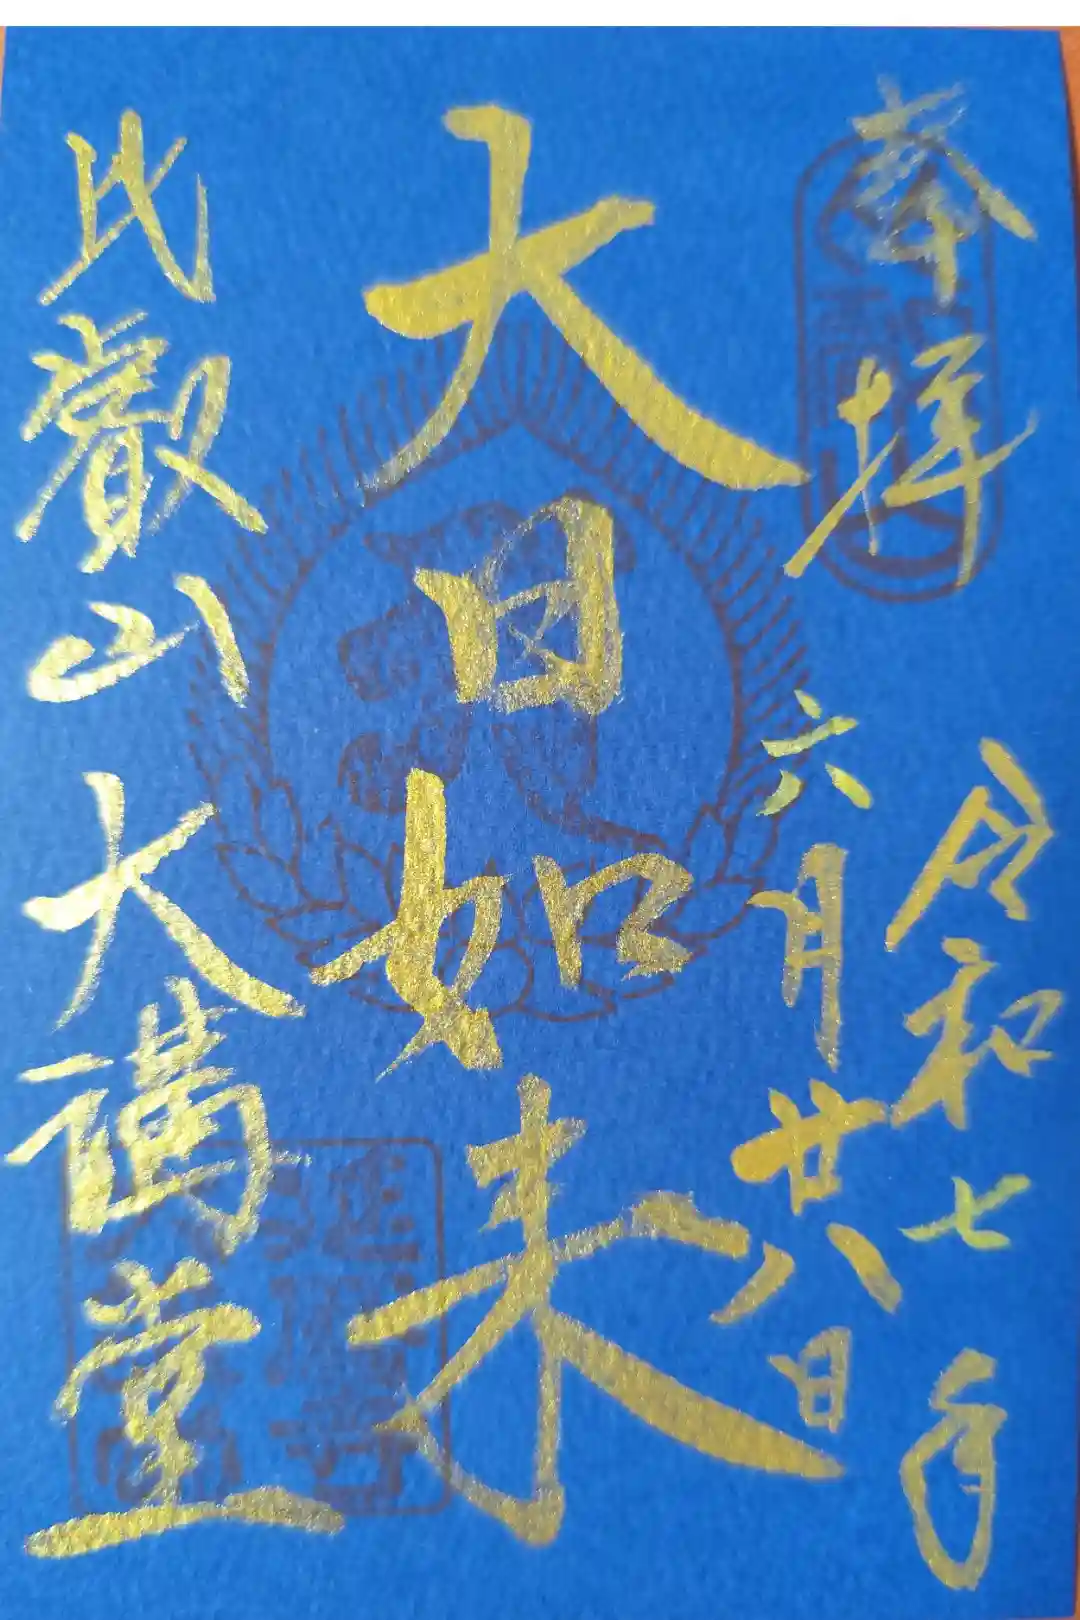 奉拝
令和七年
六月廿八日
大日如来
比叡山 大講堂